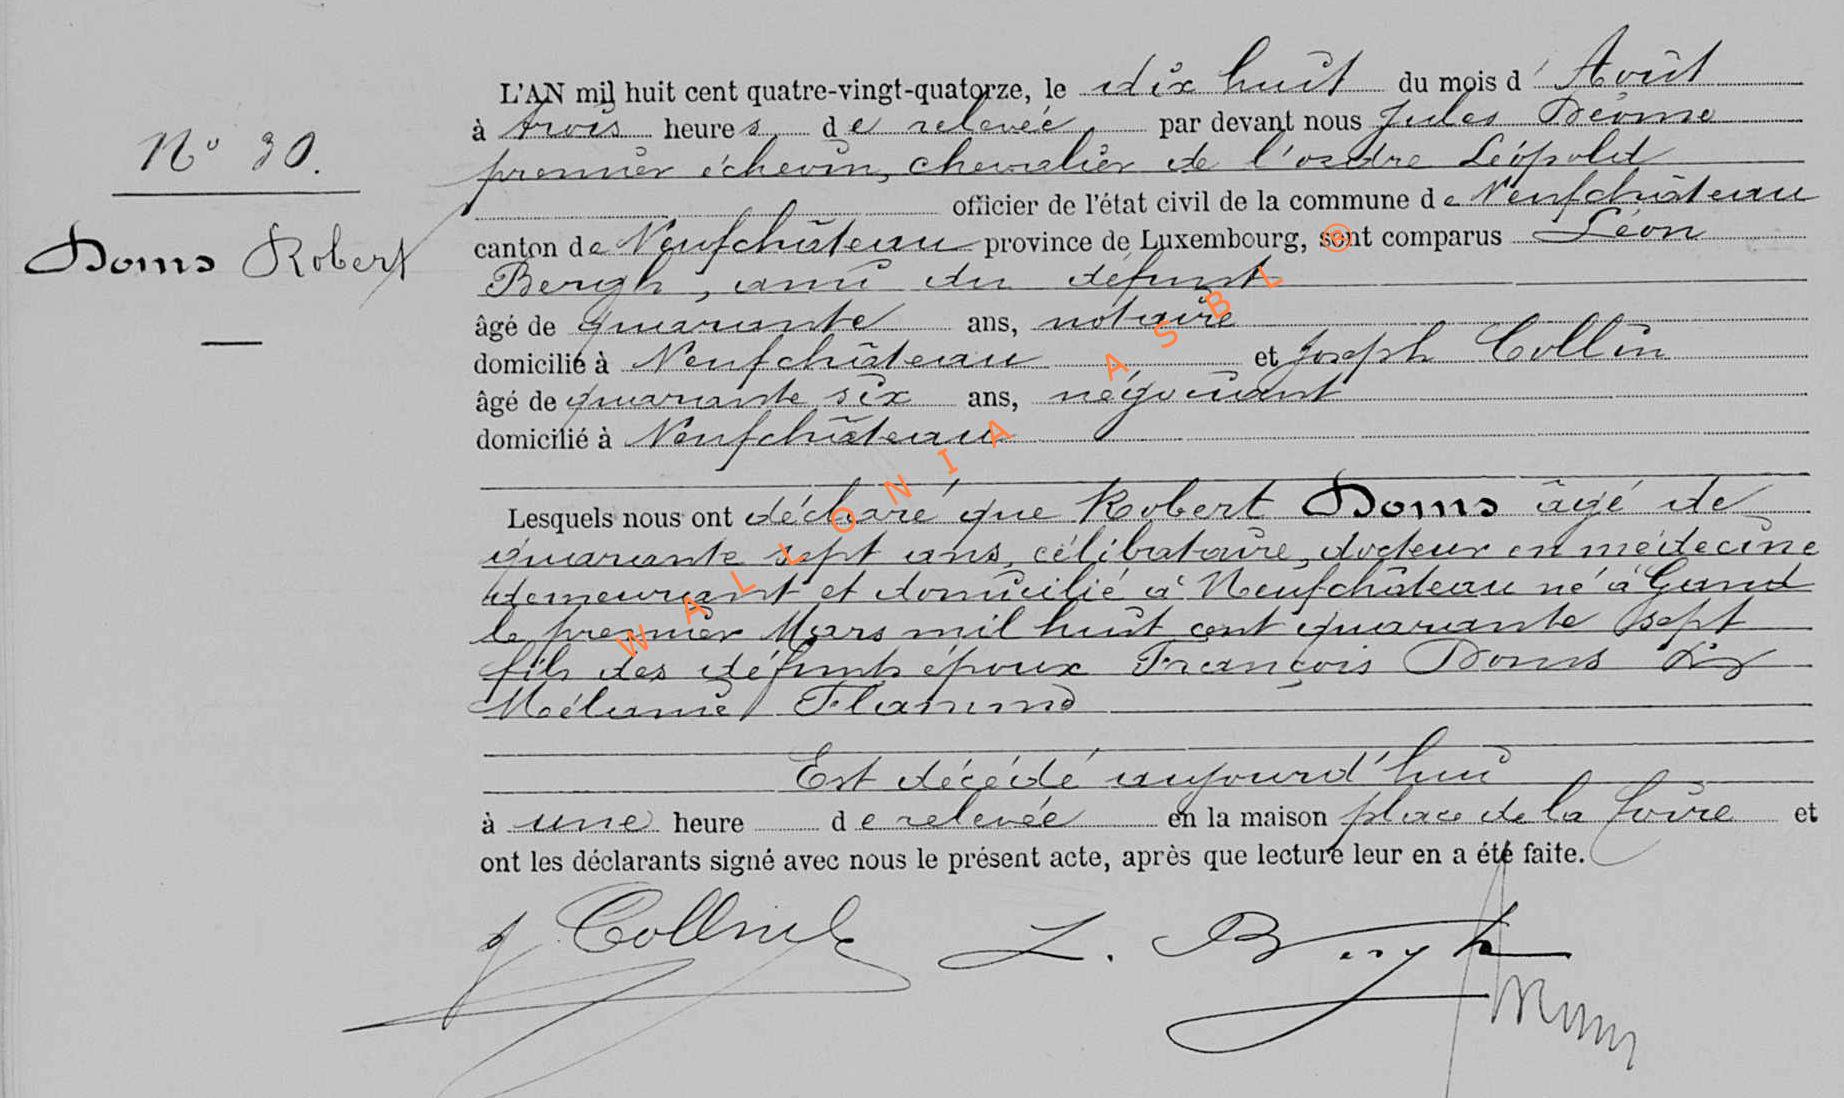 L'AN mil huit cent quatre-vingt-quatorze, le dix huit du mois d' Août
à trois heures de relevée par devant nous Jules
N° 30.
premier échevin, chevalier de l'ordre Léopold
officier de l'état civil de la commune de Neufchâteau
Doms Robert
canton de Neufchâteau province de Luxembourg, sont comparus Léon
Bergh, ami du défunt
âgé de quarante ans, notaire
domicilié à Neufchâteau et Joseph Collin
âgé de quarante six ans, négociant
domicilié à Neufchâteau
Lesquels nous ont déclaré que Robert Doms âgé de
quarante sept ans, célibataire, docteur en médecine
demeurant et domicilié à Neufchâteau né à Gand
le premier Mars mil huit cent quarante sept
fils des défunts époux François Doms &
Mélanie Flamend
Est décédé aujourd'hui
à une heure de relevée en la maison place de la foire et
ont les déclarants signé avec nous le présent acte, après que lecture leur en a été faite.
J Collin L. Bergh
WALLONIA ASBL ®